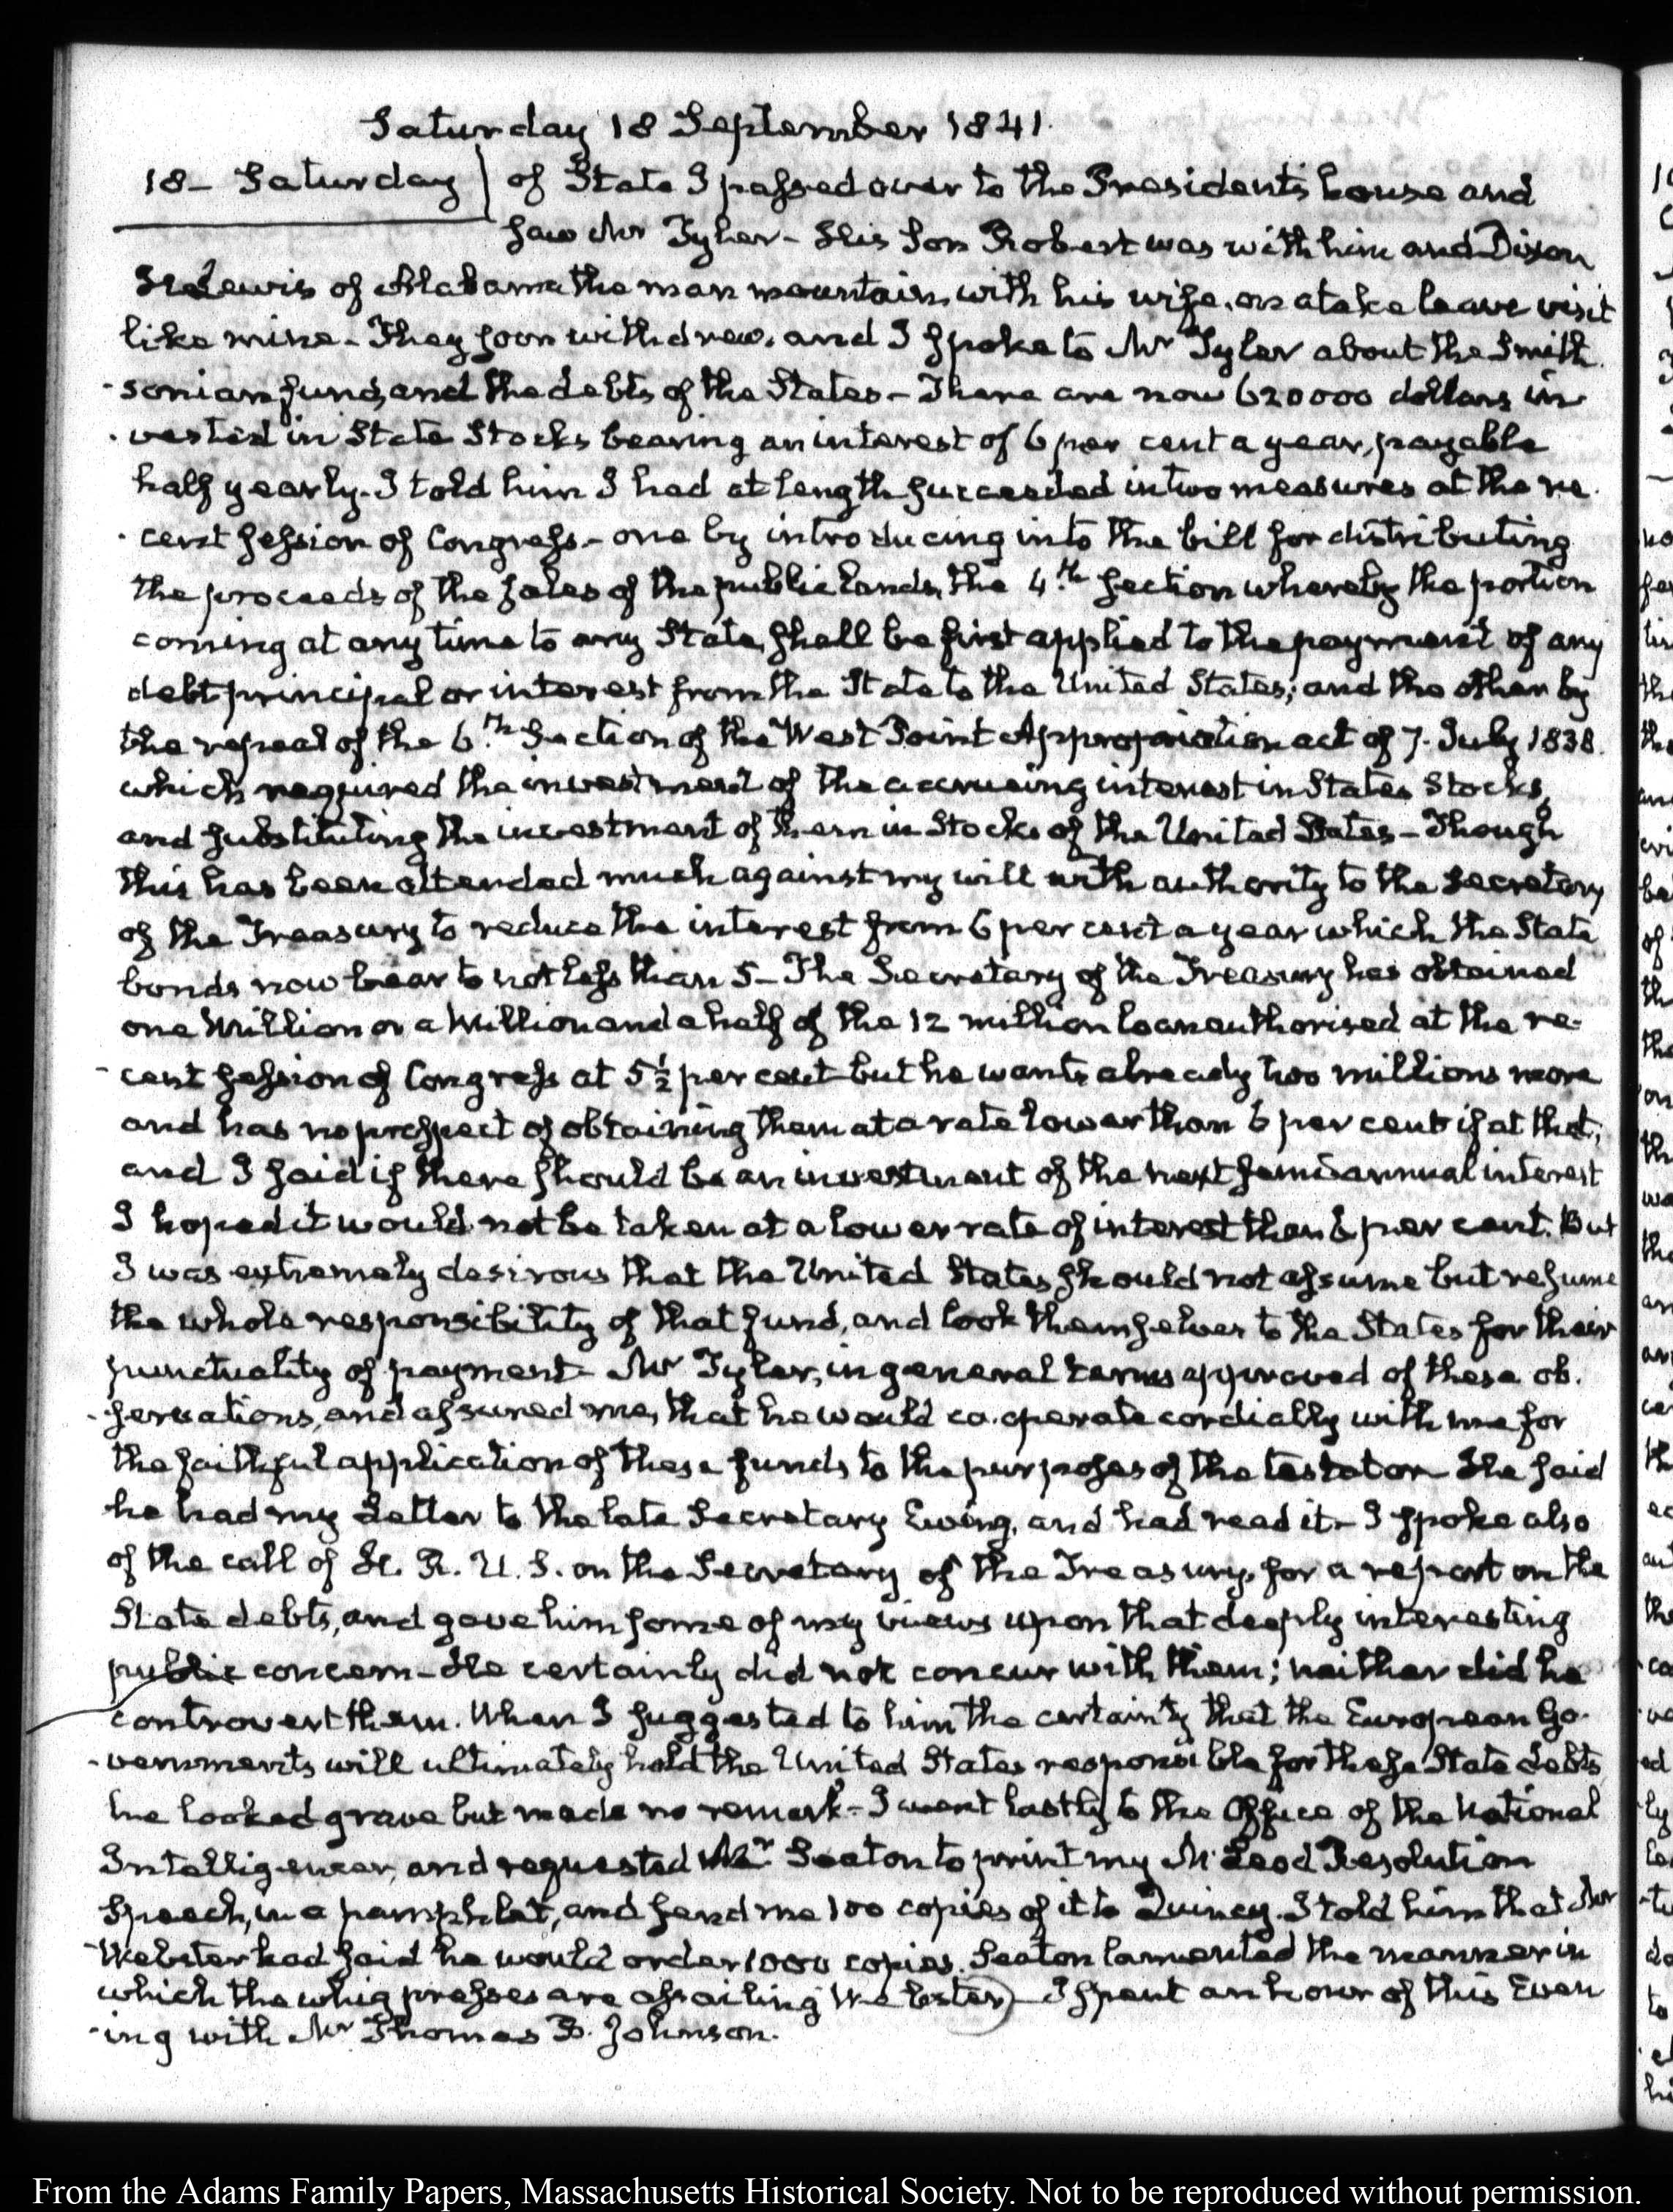 Saturday 18 September 1841.
18- Saturday) of State I passed over to the President's house and
saw Mr Tyler- His Son Robert was with him and Dixon
H. Lewis of Alabama the man mountain, with his wife, on a take leave visit
like mine- They soon withdrew, and I spoke to Mr Tyler about the Smith-
-sonian fund, and the debts of the States- There are now 620000 dollars in
-vested in State Stocks bearing an interest of 6 per cent a year, payable
half yearly. I told him I had at length succeeded in two measures at the re-
-cent session of Congress- one by introducing into the bill for distributing
the proceeds of the sales of the public lands, the 4.th section whereby the portion
coming at any time to any State, shall be first applied to the payment of any
debt principal or interest from the State to the United States; and the other by
the repeal of the 6.th Section of the West Point Appropriation act of 7. July 1838.
which required the investment of the accrueing interest in States Stocks,
and substituting the investment of them in Stocks of the United States- Though
this has been attended much against my will with authority to the Secretary
of the Treasury to reduce the interest from 6 per cent a year which the State
bonds now bear to not less than 5- The Secretary of the Treasury has obtained
one Million or a Million and a half of the 12 million loan authorised at the re-
-cent session of Congress at 5½ per cent but he wants already two millions more
and has no prospect of obtaining them at a rate lower than 6 per cent if at that,
and I said if there should be an investment of the next semi-annual interest
I hoped it would not be taken at a lower rate of interest than 6 per cent. But
I was extremely desirous that the United States should not assume but resume
the whole responsibility of that fund, and look themselves to the States for their
punctuality of payment- Mr Tyler, in general terms approved of these ob-
-servations, and assured me, that he would co-operate cordially with me for
the faithful application of these funds to the purposes of the testator- He said
he had my Letter to the late Secretary Ewing, and had read it- I spoke also
of the call of H. R. U. S. on the Secretary of the Treasury, for a report on the
State debts, and gave him some of my views upon that deeply interesting
public concern- He certainly did not concur with them; neither did he
controvert them. When I suggested to him the certainty that the European Go-
-vernments will ultimately hold the United States responsible for these State debts
he looked grave but made no remark- I went lastly to the Office of the National
Intelligencer, and requested Mr Seaton to print my McLeod Resolution
Speech, in a pamphlet, and send me 100 copies of it to Quincy. I told him that Mr
Webster had said he would order 1000 copies. Seaton lamented the manner in
which the whig presses are assailing Webster)- I spent an hour of this Even
-ing with Mr Thomas B. Johnson.
From the Adams Family Papers, Massachusetts Historical Society. Not to be reproduced without permission.